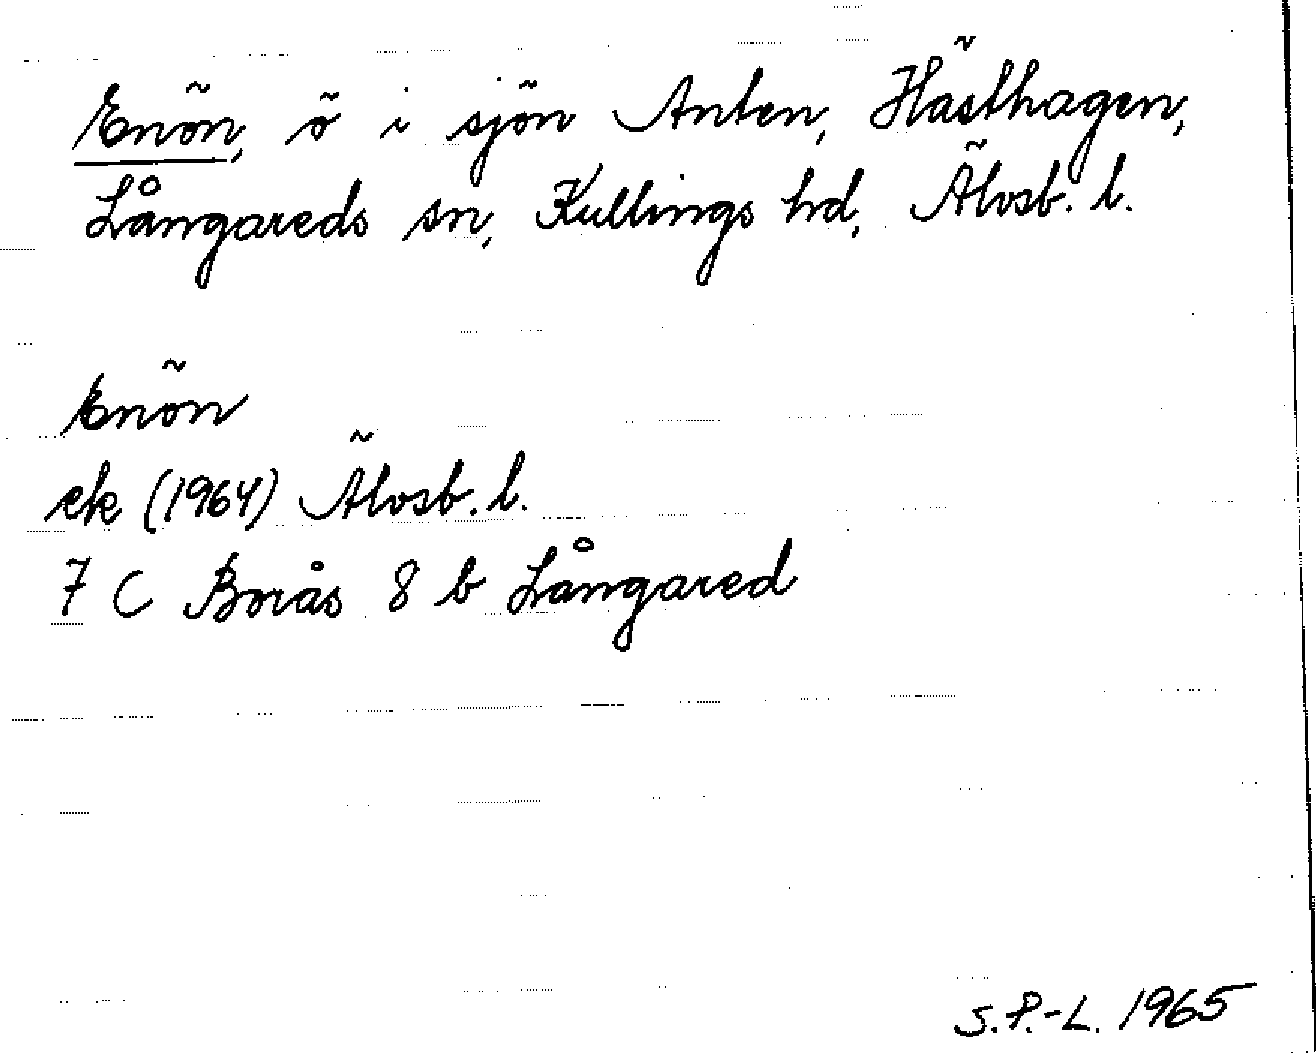 Enön, ö i sjön Anten, Hästhagen,
Långareds sn, Kullings hd, Älvsb. l.
Enön
ek (1964) Älvsb. l.
7 C Borås 8 b Långared
S.P.-L. 1965